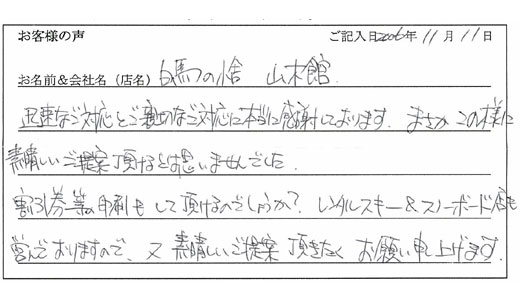 お客様の声 ご記入日2006年11月11日
お名前&会社名(店名) 白馬の宿 山木館
迅速なご対応とご親切なご対応に本当に感謝しております。まさかこの様に
素晴しいご提案頂けるとは思いませんでした。
割引券等の印刷もして頂けるのでしょうか?レンタルスキー&スノーボード店も
営んでおりますので、又素晴しいご提案頂きたくお願い申し上げます。